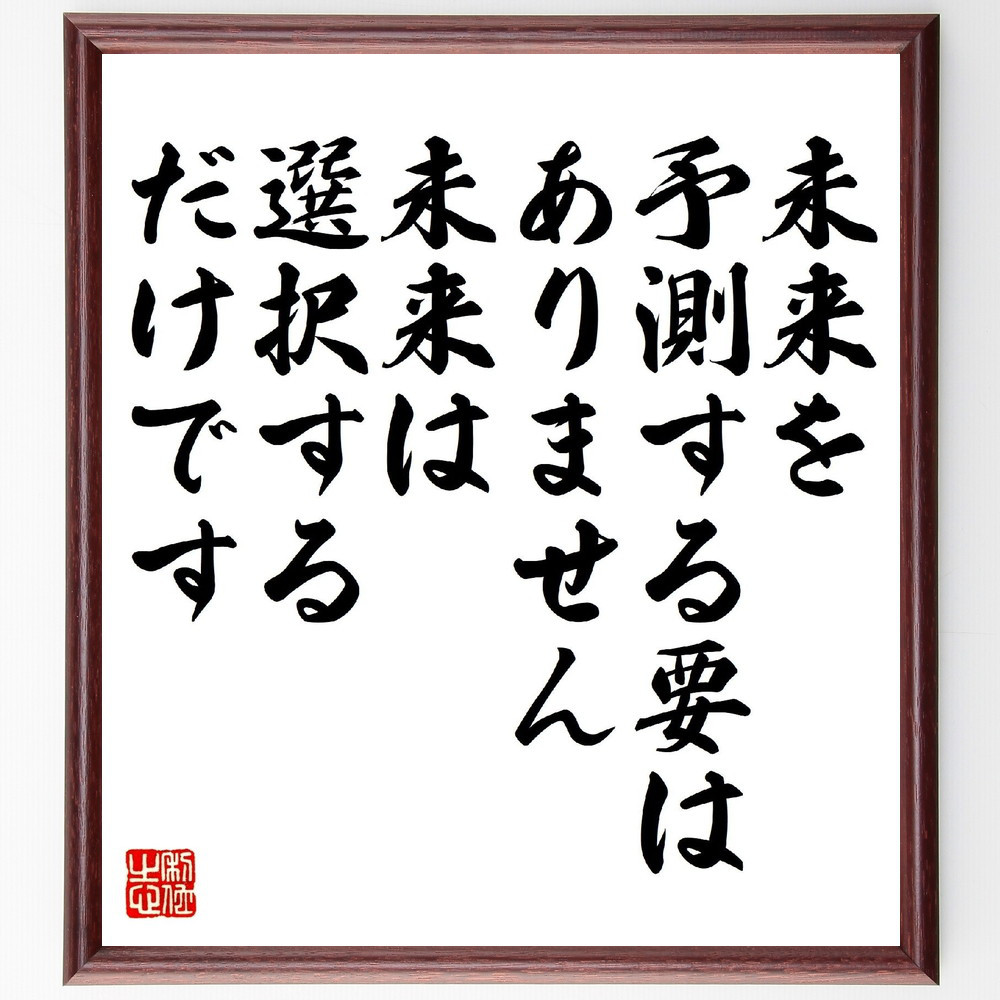 未来を
予測する要は
ありません
未来は
選択する
だけです